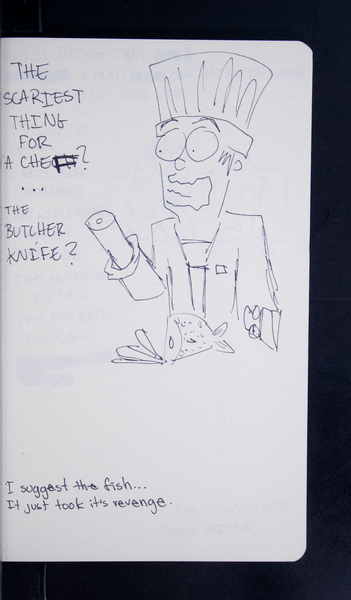 THE
SCARIEST
THING
FOR
A CHEF?
...
THE
BUTCHER
KNIFE?
I suggest the fish...
It just took it's revenge.